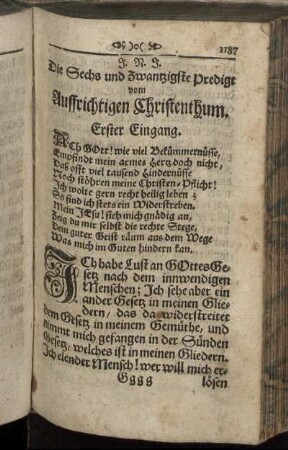 1187
J. N. J.
Die Sechs und Zwantzigste Predigt
vom
Auffrichtigen Christenthum.
Erster Eingang.
ACh GOtt! wie viel Bekümmernüsse,
Empfindt mein armes Hertz doch nicht,
Daß offt viel tausend Hindernüsse
Noch stöhren meine Christen-Pflicht!
Ich wolte gern recht heilig leben;
So find ich stets ein Widerstreben.
Mein JEsu! sieh mich gnädig an,
Zeig du mir selbst die rechte Stege,
Dein guter Geist räum aus dem Wege
Was mich im Guten hindern kan.
ICh habe Lust an GOttes Ge-
setz nach dem innwendigen
Menschen; Ich sehe aber ein
ander Gesetz in meinen Glie-
dern, das da widerstreitet
dem Gesetz in meinem Gemüthe, und
nimmt mich gefangen in der Sünden
Gesetz, welches ist in meinen Gliedern.
Ich elender Mensch! wer will mich er-
Gggg lösen